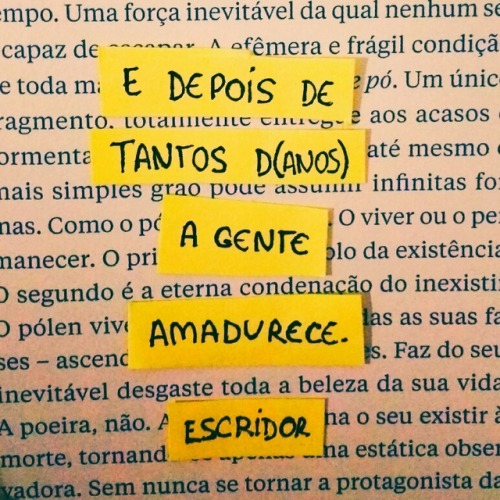 mpo. Uma força inevitável da qual nenhum se
capaz de A efêmera e frágil condiçã
E DEPOIS DE
e toda m pó. Um únic
ragmento. totalmente e aos acasos
TANTOS D(ANOS)
ormenta até mesmo
mais simples grão pode assumir infinitas fo
nas. Como o pó O viver ou o pe
A GENTE
manecer. O pri olo da existência
O segundo é a eterna condenação do inexisti
O pólen vive as suas fa
AMADURECE.
ses – ascend s. Faz do seu
inevitável desgaste toda a beleza da sua vida
A poeira, não. A na o seu existir à
ESCRIDOR
morte, tornand na estática obser
vadora. Sem nunca se tornar a protagonista da